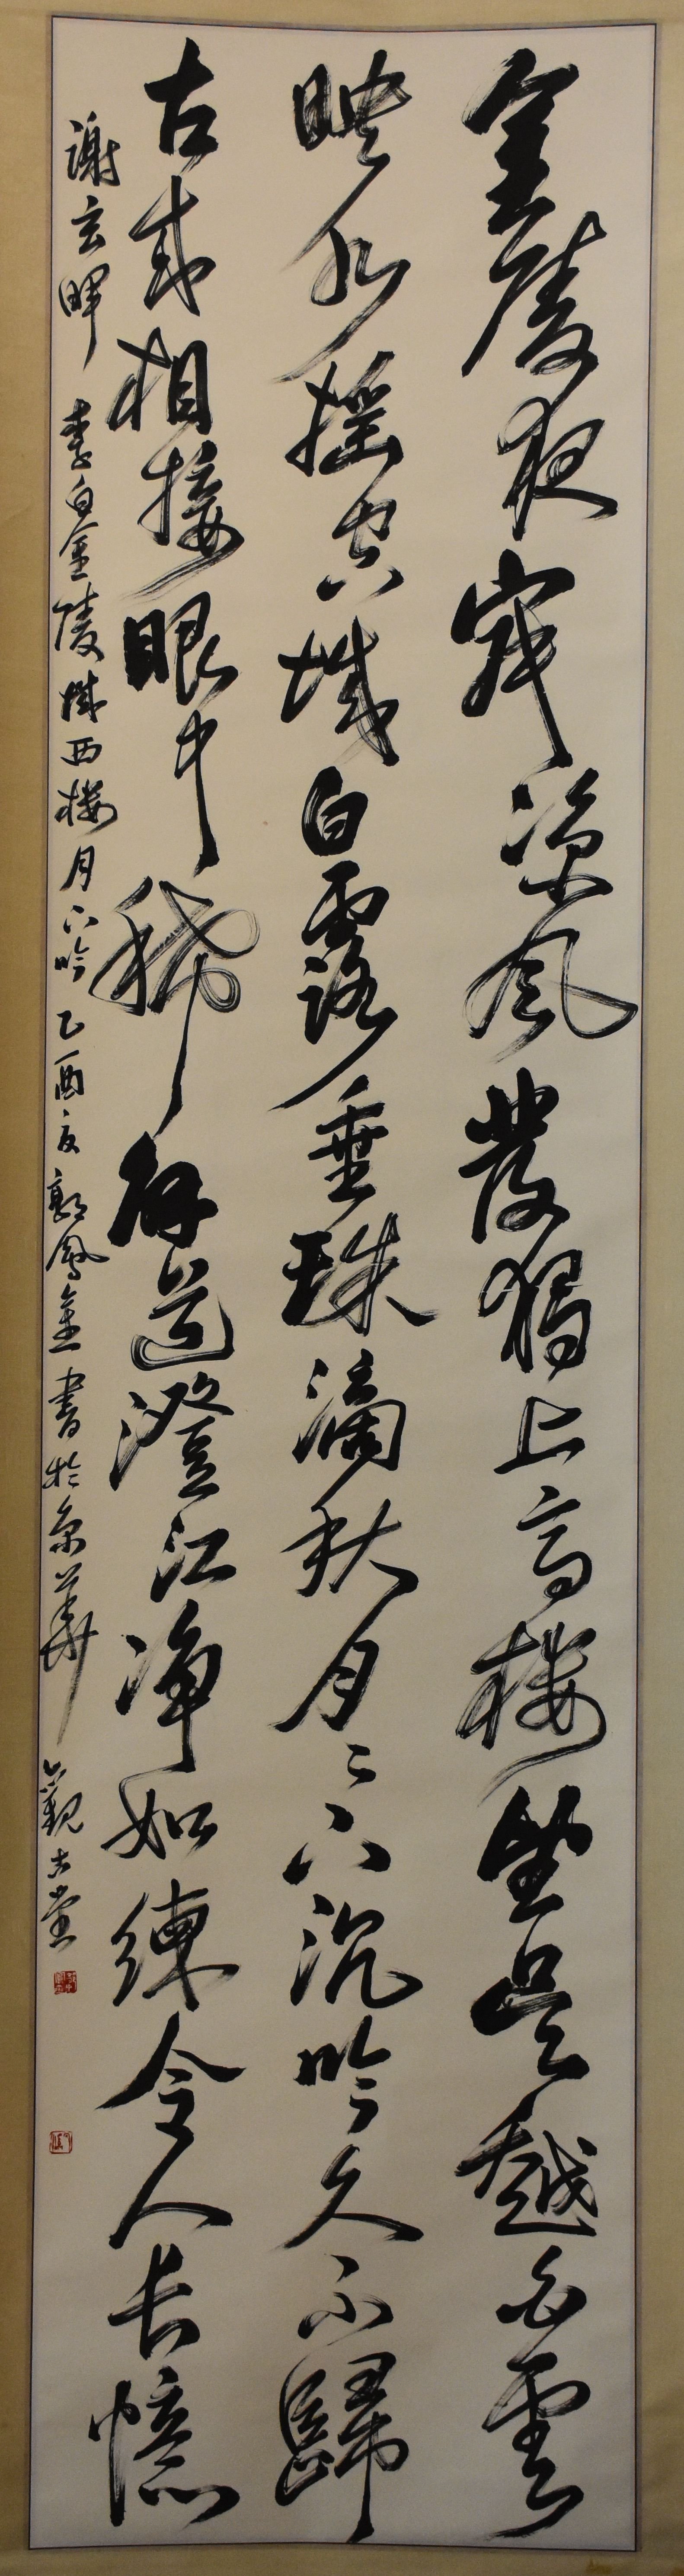 金陵夜寂凉風發獨上高樓望吳越白雲
映水摇空城白露垂珠滴秋月〻下沉吟久不歸
古來相接眼中稀解道澄江净如練令人長憶
謝玄暉 李白金陵城西樓月下吟 乙酉夏郭鳳金書於京華 觀堂